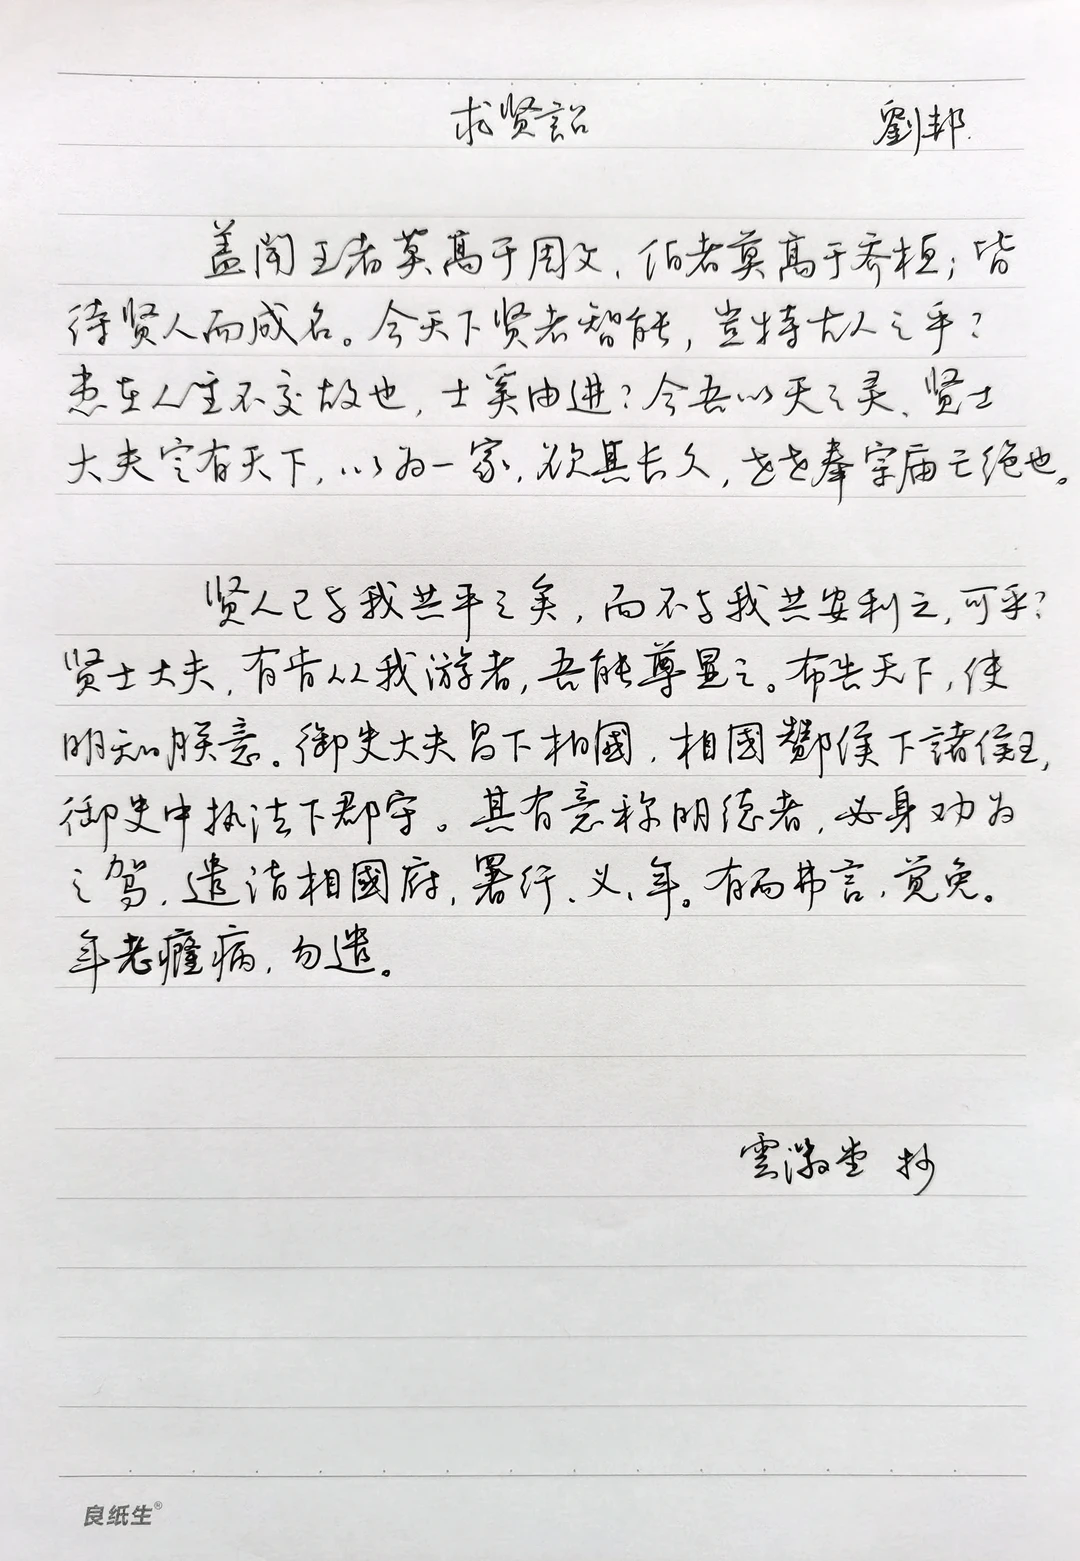 求贤詔 劉邦
盖闻王者莫高于周文，伯者莫高于齐桓；皆
待贤人而成名。今天下贤者智能，岂特古人之乎？
患在人主不交故也，士奚由进？今吾以天之灵、贤士
大夫定有天下，以为一家，欲其长久，世世奉宗庙亡绝也。
贤人已与我共平之矣，而不与我共安利之，可乎？
贤士大夫，有肯从我游者，吾能尊显之。布告天下，使
明知朕意。御史大夫昌下相國，相國酇侯下諸侯王，
御史中执法下郡守。其有意称明德者，必身劝为
之驾，遣诣相國府，署行、义、年。有而弗言，觉免。
年老癃病，勿遣。
雲澂堂 抄
良纸生®